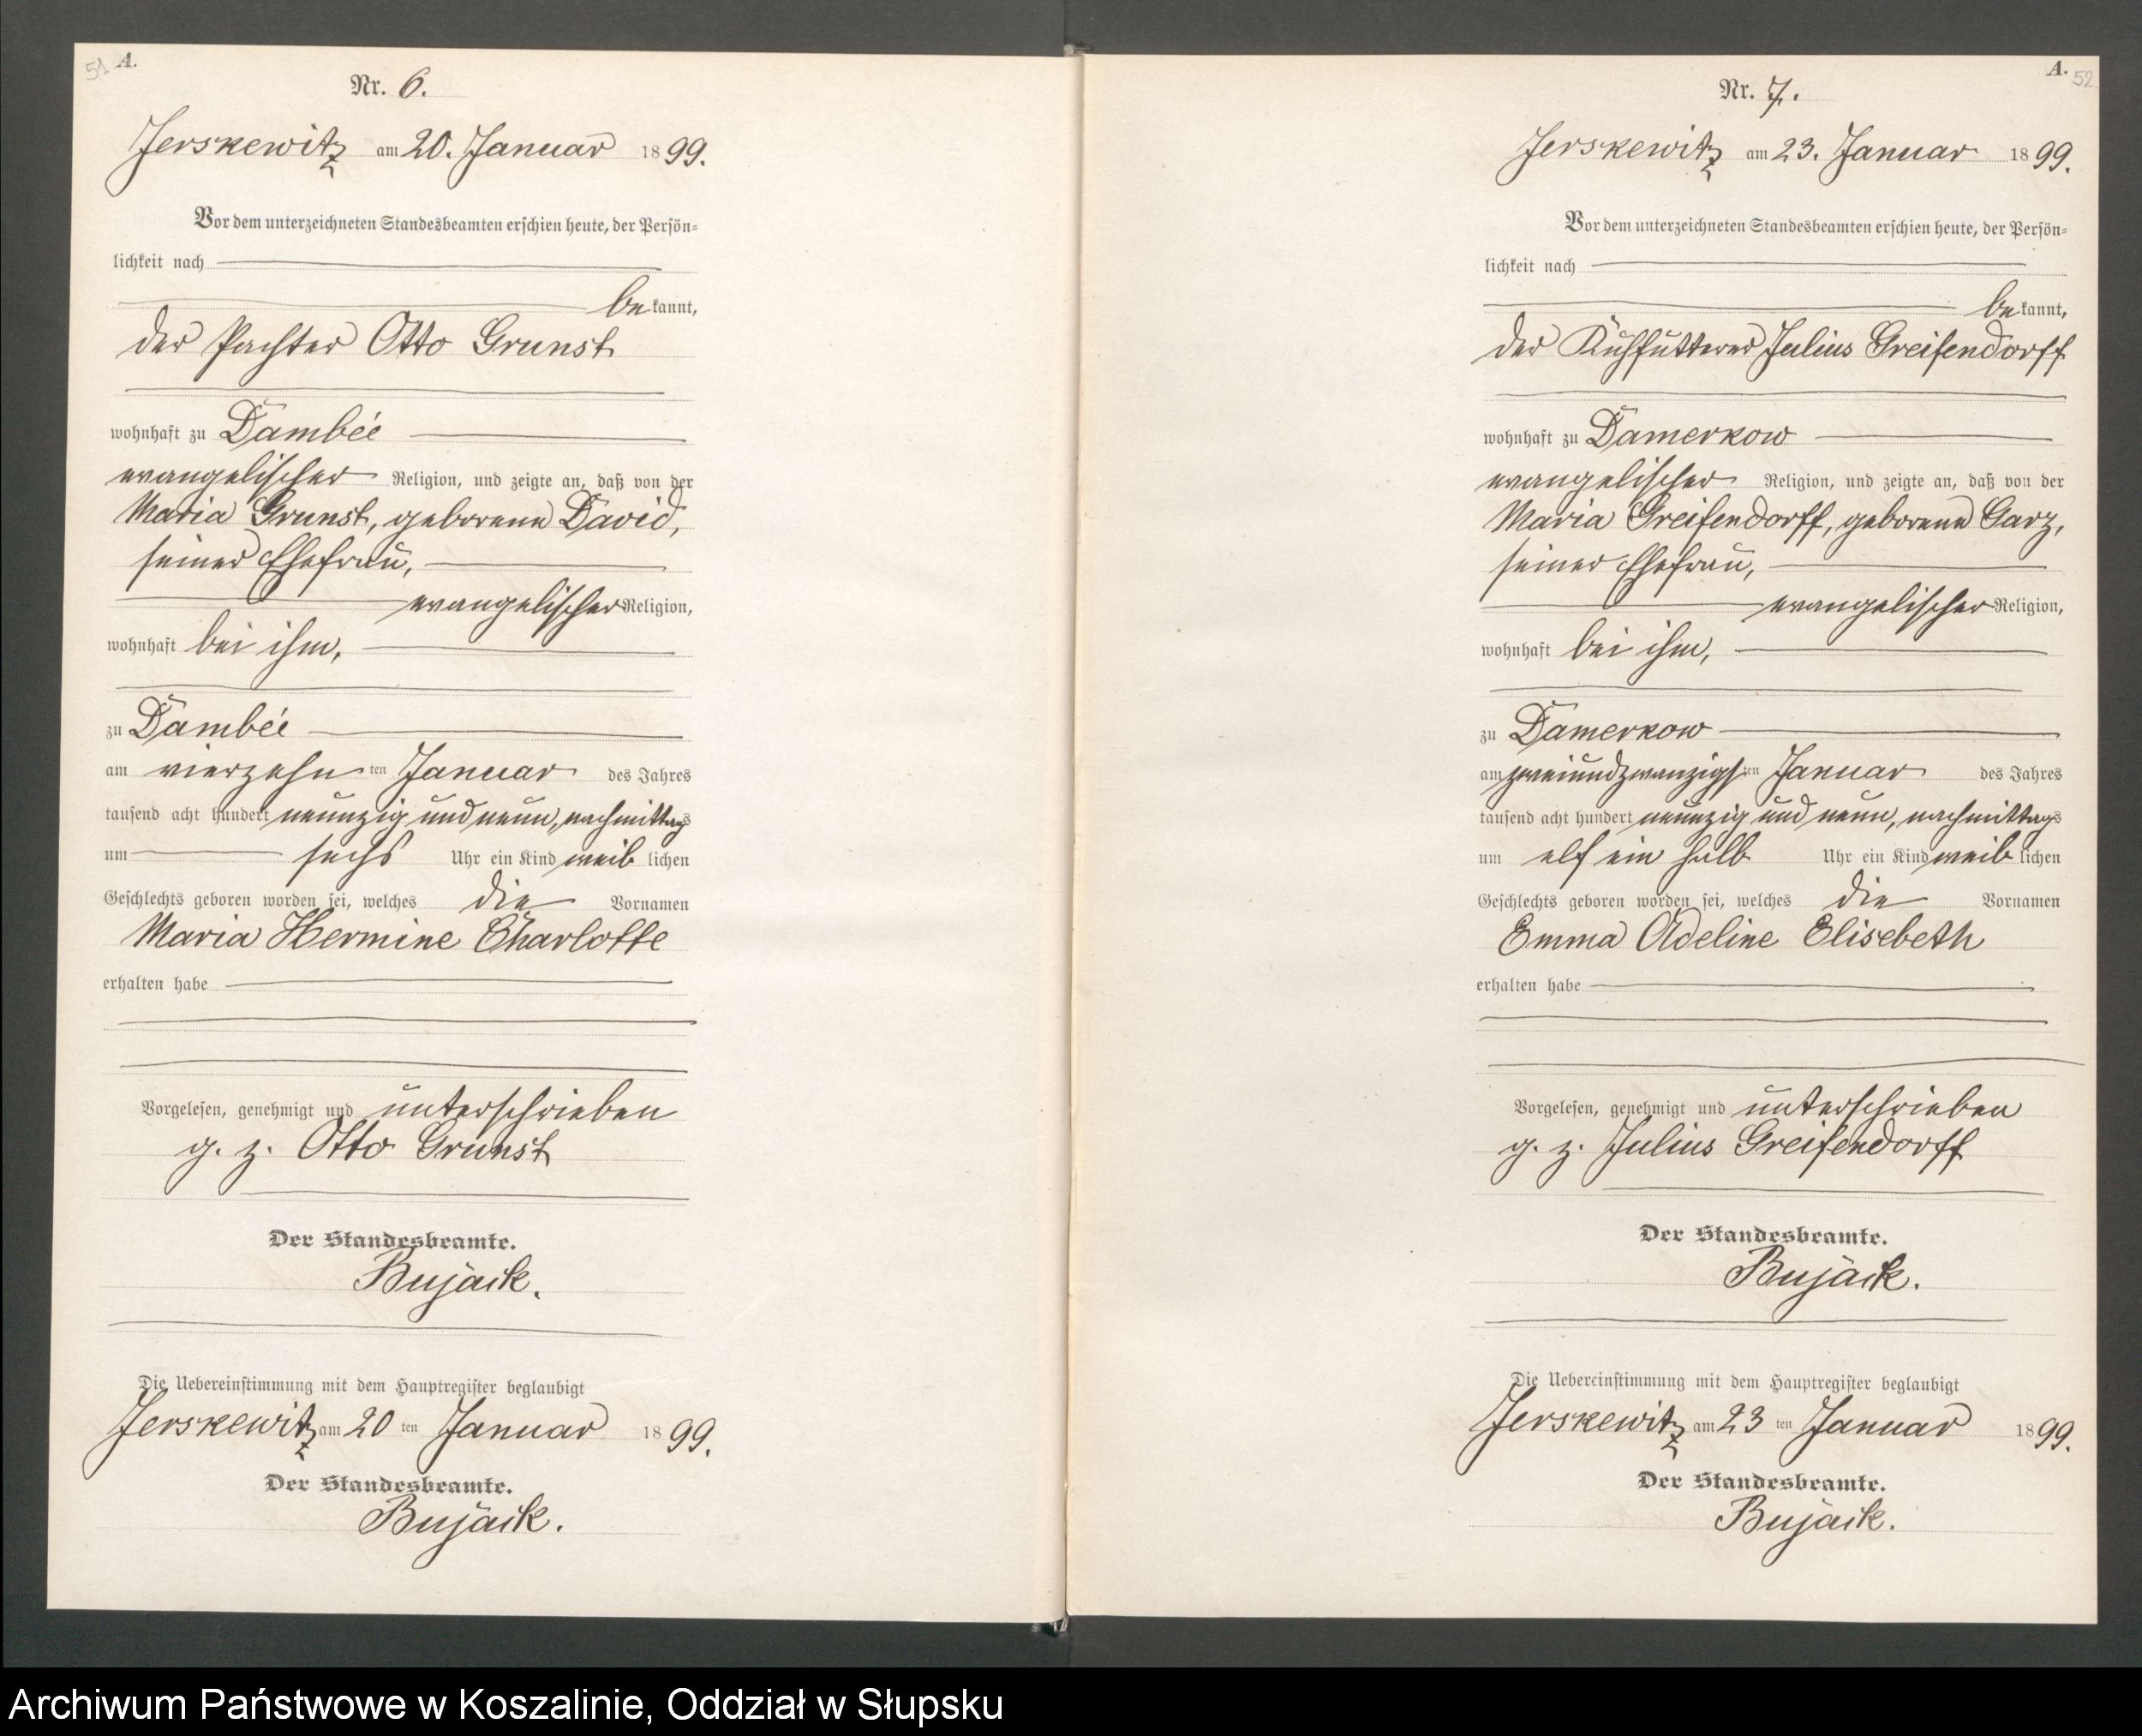 51 A.
Nr. 6.
Jerskewitz am 20. Januar 1899.
Vor dem unterzeichneten Standesbeamten erschien heute, der Persön-
lichkeit nach
bekannt,
der Pachter Otto Grunst
wohnhaft zu Dambée
evangelischer Religion, und zeigte an, daß von der
Maria Grunst, geborene David,
seiner Ehefrau,
evangelischer Religion,
wohnhaft bei ihm,
zu Dambée
am vierzehnten Januar des Jahres
tausend acht hundert neunzig und neun, nachmittags
um sechs Uhr ein Kind weiblichen
Geschlechts geboren worden sei, welches die Vornamen
Maria Hermine Charlotte
erhalten habe
Vorgelesen, genehmigt und unterschrieben
g. z. Otto Grunst
Der Standesbeamte.
Bujack.
Die Uebereinstimmung mit dem Hauptregister beglaubigt
Jerskewitz am 20ten Januar 1899.
Der Standesbeamte.
Bujack.
A. 52
Nr. 7.
Jerskewitz am 23. Januar 1899.
Vor dem unterzeichneten Standesbeamten erschien heute, der Persön-
lichkeit nach
bekannt,
der Kuhfütterer Julius Greifendorff
wohnhaft zu Damerkow
evangelischer Religion, und zeigte an, daß von der
Maria Greifendorff, geborene Garz,
seiner Ehefrau,
evangelischer Religion,
wohnhaft bei ihm,
zu Damerkow
am zweiundzwanzigsten Januar des Jahres
tausend acht hundert neunzig und neun, nachmittags
um elf ein halb Uhr ein Kind weiblichen
Geschlechts geboren worden sei, welches die Vornamen
Emma Adeline Elisebeth
erhalten habe
Vorgelesen, genehmigt und unterschrieben
g. z. Julius Greifendorff
Der Standesbeamte.
Bujack.
Die Uebereinstimmung mit dem Hauptregister beglaubigt
Jerskewitz am 23ten Januar 1899.
Der Standesbeamte.
Bujack.
Archiwum Państwowe w Koszalinie, Oddział w Słupsku